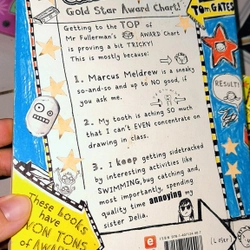 Gold Star Award Chart!
TOM GATES
Getting to the TOP of
Mr Fullerman's AWARD Chart
is proving a bit TRICKY!
This is mostly because:
1. Marcus Meldrew is a sneaky
so-and-so and up to NO good, if
you ask me.
RESULTS
2. My tooth is aching SO much
that I can't EVEN concentrate on
drawing in class.
3. I keep getting sidetracked
by interesting activities like
SWIMMING, bug catching and,
most importantly, spending
quality time annoying my
sister Delia.
These books
have
WON TONS
of AWARDS